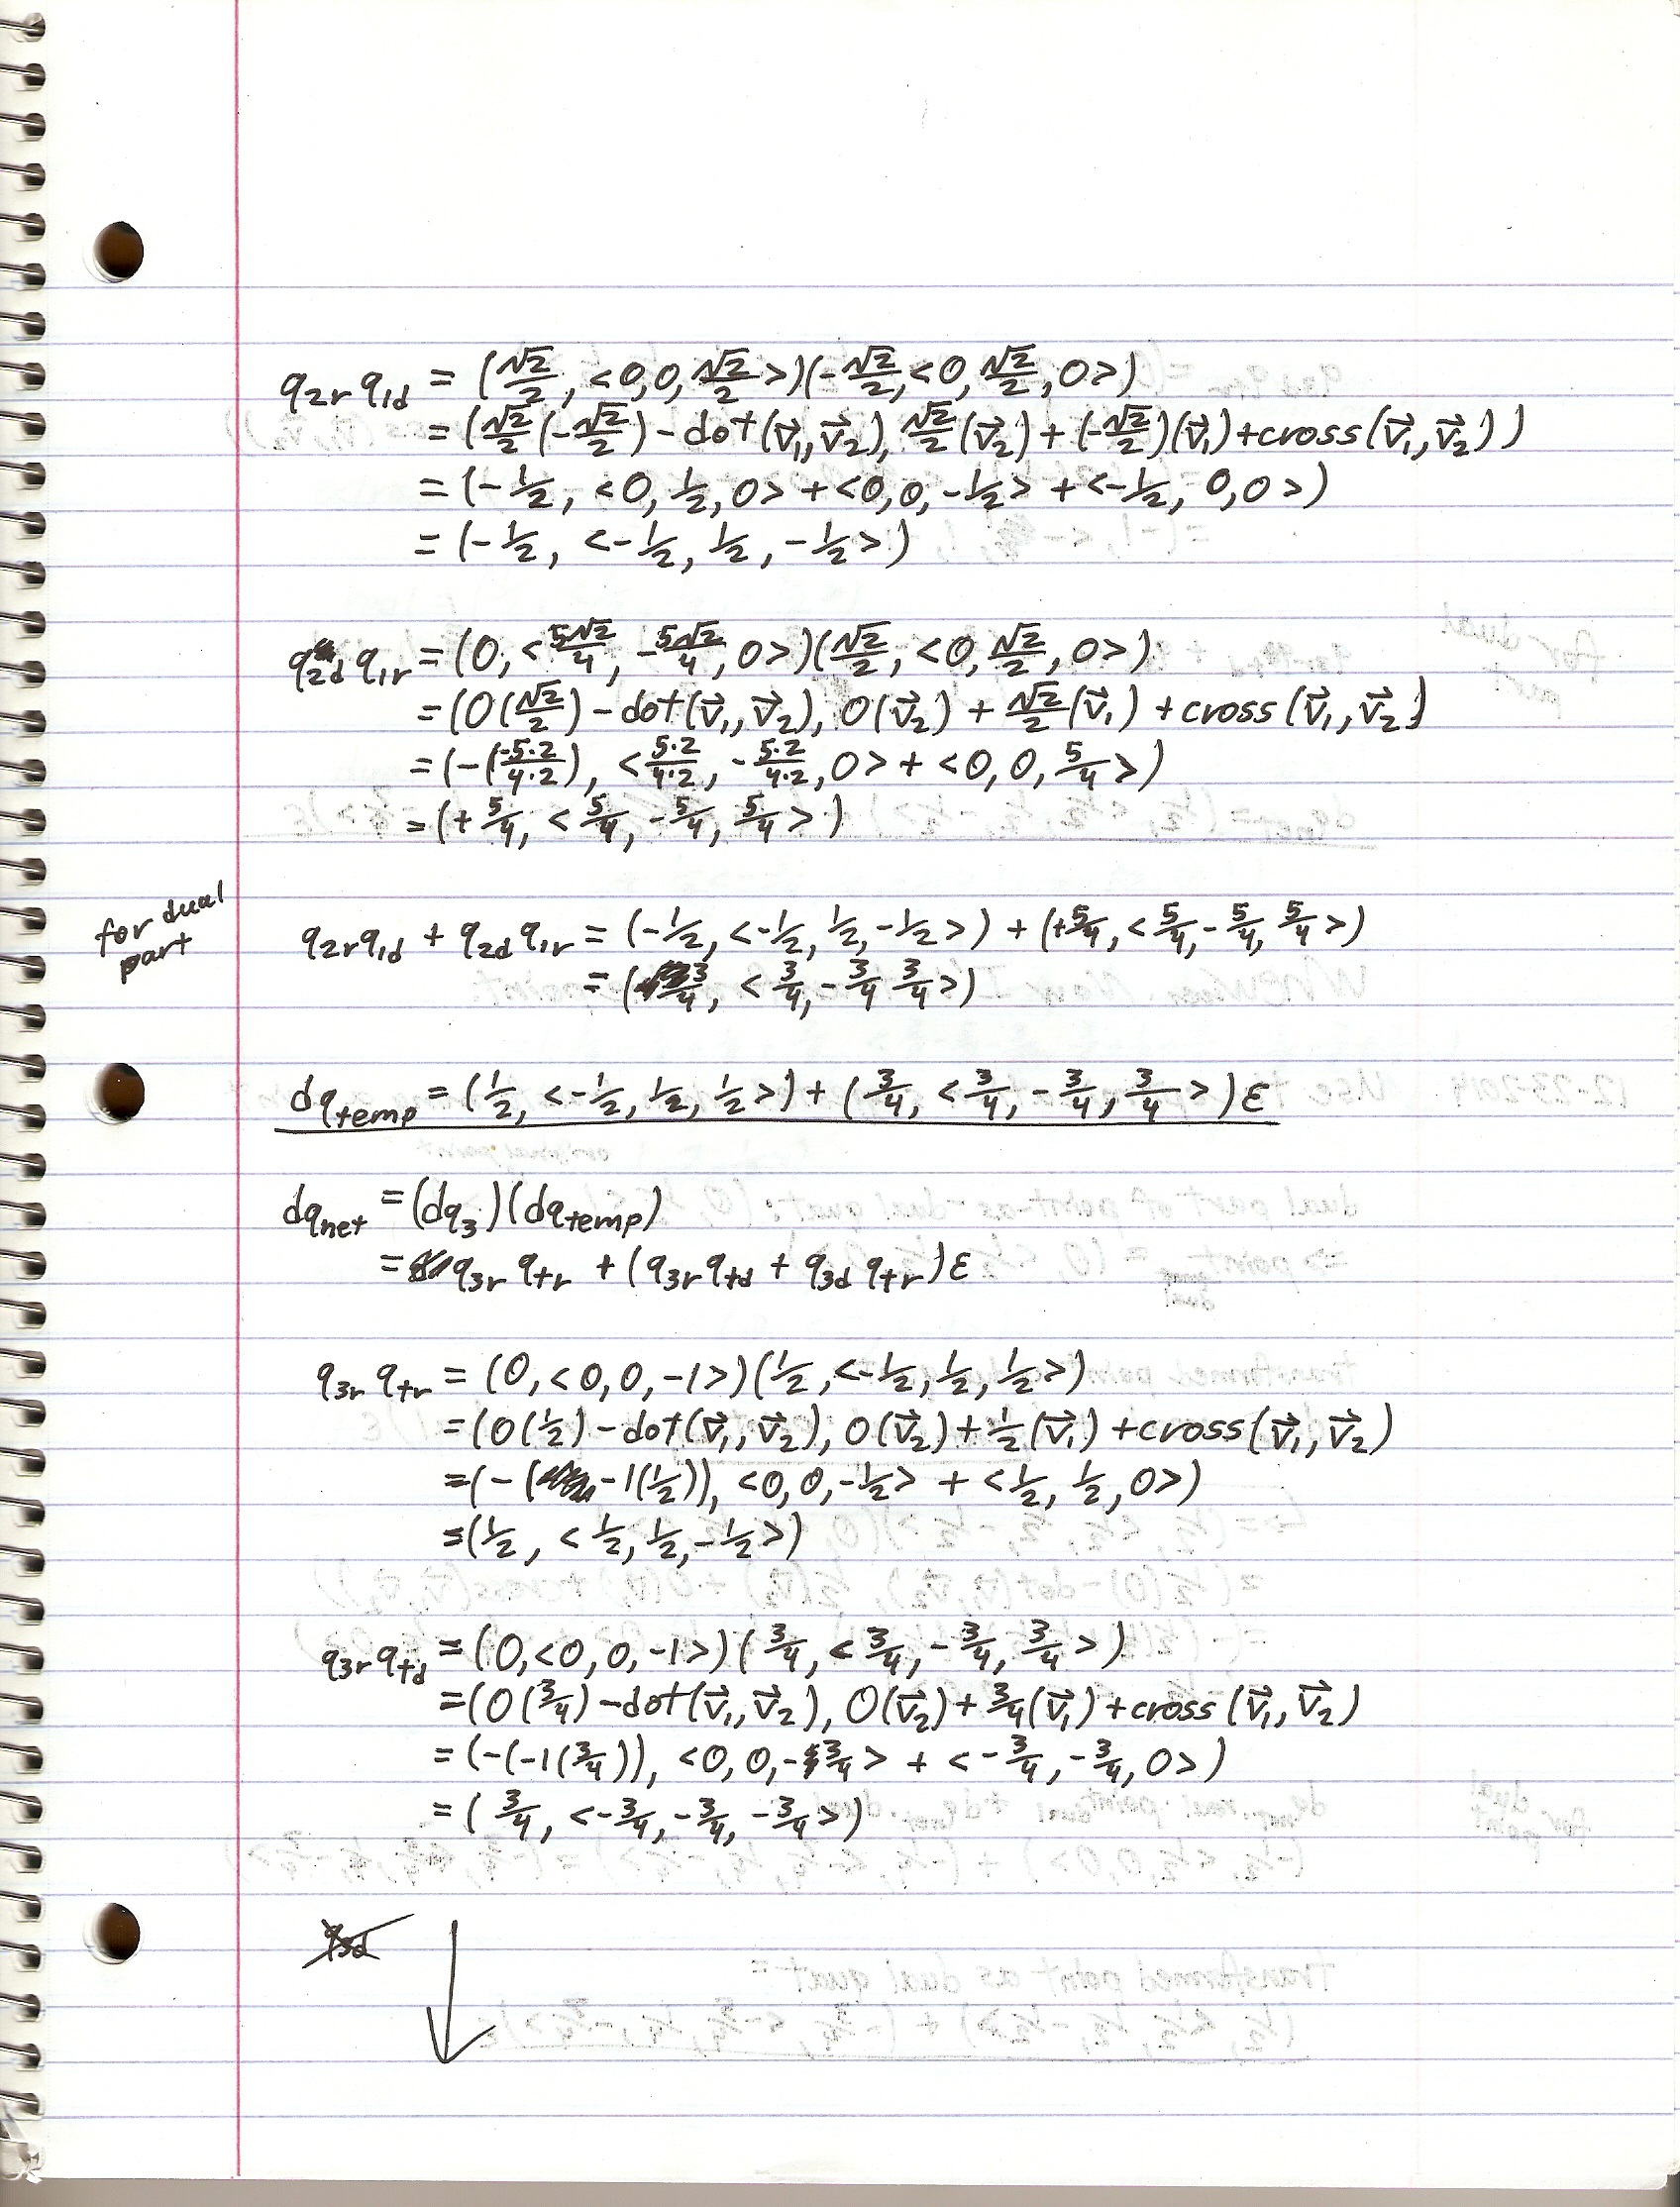 q₂ᵣ q₁d = (√2/2, <0,0,√2/2>)(-√2/2,<0,√2/2,0>)
= (√2/2(-√2/2) - dot(v⃗₁,v⃗₂), √2/2(v⃗₂) + (-√2/2)(v⃗₁) + cross(v⃗₁,v⃗₂))
= (-1/2, <0,1/2,0> + <0,0,-1/2> + <-1/2, 0,0>)
= (-1/2, <-1/2, 1/2, -1/2>)
q₂d q₁ᵣ = (0, <5√2/4, -5√2/4, 0>)(√2/2, <0,√2/2,0>)
= (0(√2/2) - dot(v⃗₁,v⃗₂), 0(v⃗₂) + √2/2(v⃗₁) + cross(v⃗₁,v⃗₂)
= (-(-5·2/4·2), <5·2/4·2, -5·2/4·2, 0> + <0,0,5/4>)
= (+5/4, <5/4, -5/4, 5/4>)
for dual
part
q₂ᵣq₁d + q₂d q₁ᵣ = (-1/2, <-1/2, 1/2, -1/2>) + (+5/4, <5/4, -5/4, 5/4>)
= (3/4, <3/4, -3/4 3/4>)
dq_temp = (1/2, <-1/2, 1/2, 1/2>) + (3/4, <3/4, -3/4, 3/4>)ε
dq_net = (dq₃)(dq_temp)
= q₃ᵣ qₜᵣ + (q₃ᵣ qₜd + q₃d qₜᵣ)ε
q₃ᵣ qₜᵣ = (0,<0,0,-1>)(1/2,<-1/2,1/2,1/2>)
= (0(1/2) - dot(v⃗₁,v⃗₂), 0(v⃗₂) + 1/2(v⃗₁) + cross(v⃗₁,v⃗₂)
= (-(-1(1/2)), <0,0,-1/2> + <1/2, 1/2, 0>)
= (1/2, <1/2, 1/2, -1/2>)
q₃ᵣ qₜd = (0,<0,0,-1>)(3/4, <3/4, -3/4, 3/4>)
= (0(3/4) - dot(v⃗₁,v⃗₂), 0(v⃗₂) + 3/4(v⃗₁) + cross(v⃗₁,v⃗₂)
= (-(-1(3/4)), <0,0,-3/4> + <-3/4, -3/4, 0>)
= (3/4, <-3/4, -3/4, -3/4>)